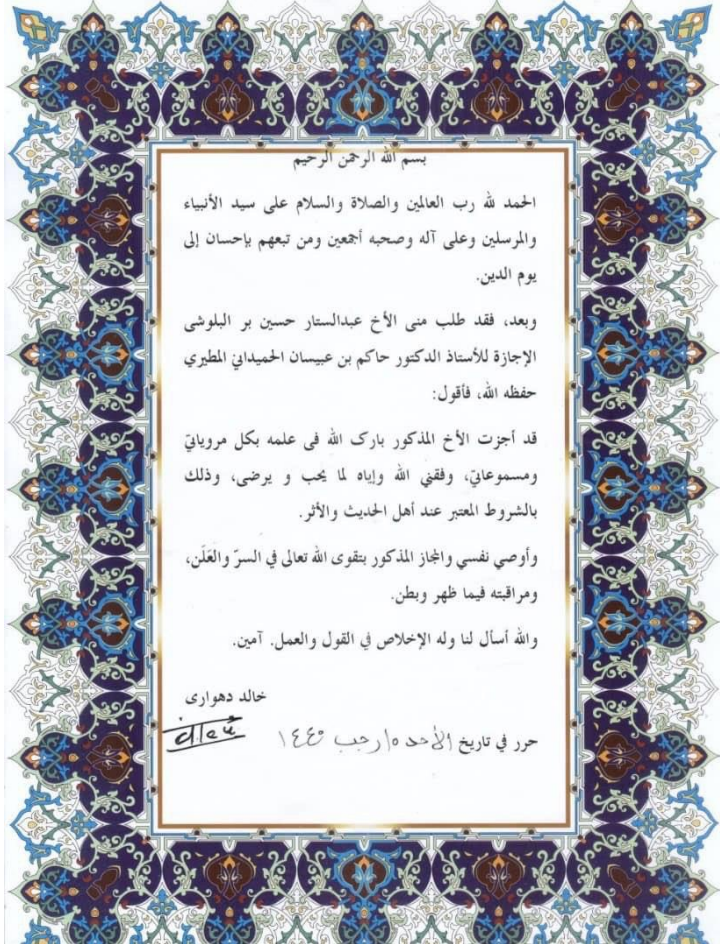 بسم الله الرحمن الرحيم
الحمد لله رب العالمين والصلاة والسلام على سيد الأنبياء
والمرسلين وعلى آله وصحبه أجمعين ومن تبعهم بإحسان إلى
يوم الدين.
وبعد، فقد طلب منى الأخ عبدالستار حسين بر البلوشى
الإجازة للأستاذ الدكتور حاكم بن عبيسان الحميدانيّ المطيري
حفظه الله، فأقول:
قد أجزت الأخ المذكور بارك الله فى علمه بكل مروياتيّ
ومسموعاتيّ، وفقني الله وإياه لما يحب و يرضى، وذلك
بالشروط المعتبر عند أهل الحديث والأثر.
وأوصي نفسي والمجاز المذكور بتقوى الله تعالى في السرّ والعَلَن،
ومراقبته فيما ظهر وبطن.
والله أسأل لنا وله الإخلاص في القول والعمل. آمين.
خالد دهوارى
حرر في تاريخ الأحد ١٥ رجب ١٤٤٠